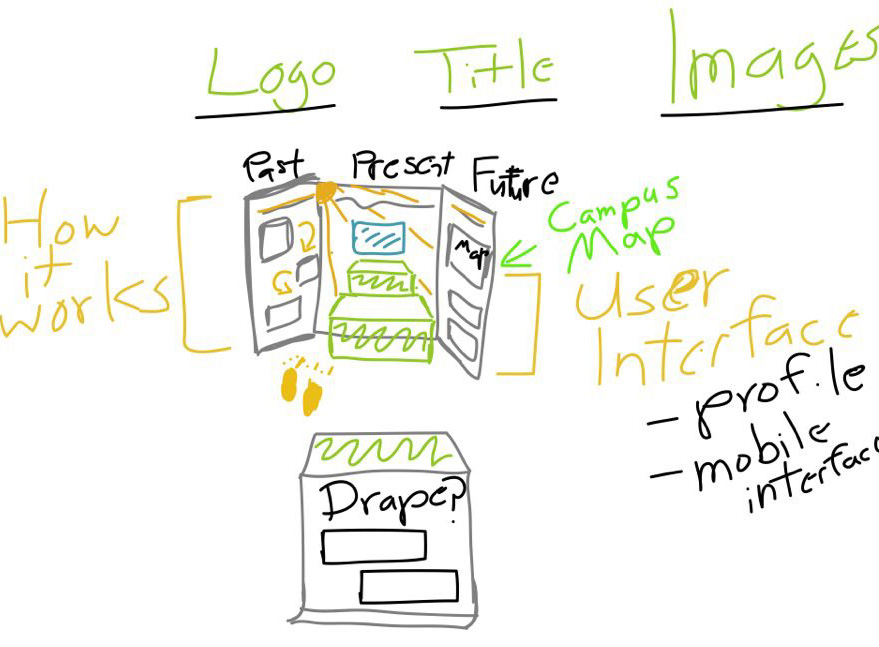 Logo Title Images
Past Present Future
How
it
works
Campus
Map
Map
User
Interface
- profile
- mobile
interface
Drape?